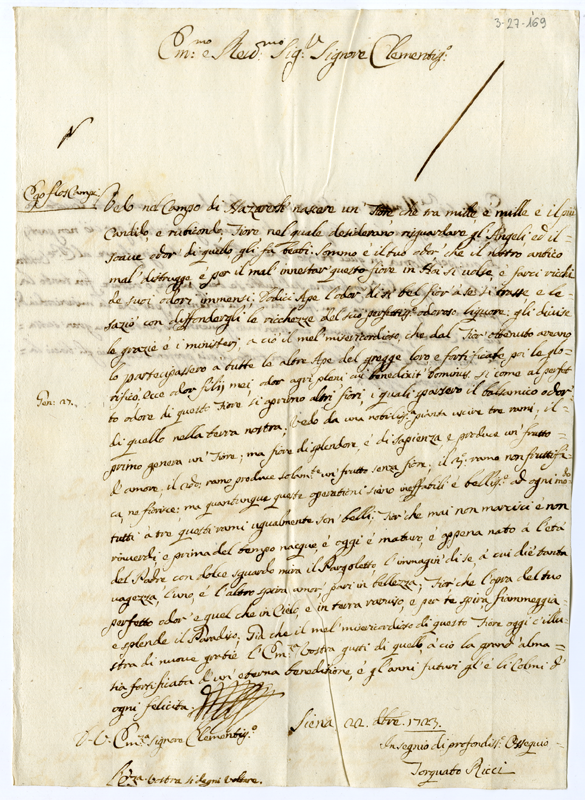 3-27-169
Em.mo e Rev.mo Sig.r Signore Clementiss.o
Ego flos Campi
Vedo nel Campo di Nazareth nascere un' Fiore, che tra mille e mille è il più
Candido e rubicondo, Fiore nel quale desiderano risguardare gl'Angeli ed il
soave odor' di quello gli fà beati. Sommo è il tuo odor' che il nostro antico
mal' distrugge, e per il mal' innestar' questo fiore in Noi si volse, e farci ricchi
de suoi odori immensi. Dodici Ape l'odor' di sì bel fior' a se si trasse e le
saziò con diffondergli le ricchezze del suo perfettiss.o odoroso liquore; gli divise
le grazie è i ministerj a ciò il mel' misericordioso, che dal Fior' ottenuto aveano
lo partecipassero a tutte le altre Ape del gregge loro e fortificate poi le glo-
rificò. Ecce odor filij mei, odor agri pleni cui benedixit Dominus. si come al perfet
Gen: 27.
to odore di questo Fiore si aprirno altri fiori, i quali sparsero il balsamico odor'
di quello nella terra nostra. Vedo da una nobiliss.a pianta uscire tre rami, il
primo genera un' Fiore; ma fiore di splendore, è di sapienza e produce un' frutto
d'amore, il 2do, ramo produce solam.te un' frutto senza fiore, il 3.o ramo non fruttifi-
ca, ne fiorisce: ma quantunque queste operationi sieno ineffabili è belliss.e ad ogni modo
tutti à tre questi rami ugualmente son' belli. Fior' che mai non marcisci è non
rinverdi, e prima del tempo nacque, è oggi è maturo, è appena nato à l'età
del Padre con dolce sguardo mira il Pargoletto, l'immagin' di se, à cui diè tanta
vagezza, l'uno, e l'altro spira amor', pari in bellezza; Fior' che l'opra del tuo
perfetto odor' e quel che in Cielo, è in terra ravviso, e per te spira, fiammeggia
e splende il Paradiso. Già che il mel' misericordioso di questo Fiore oggi c'illu-
stra di nuove gratie l'Em.za Vostra gusti di quello à ciò la grand'alma
sia fortificata d'un' eterna beneditione, è gl'anni futuri gl'è li Colmi d'
ogni felicità.
Siena 22. Xbre. 1723.
D. V. Em.za Signore Clementiss.o
In segnio di profondiss.o Ossequio
Torquato Ricci